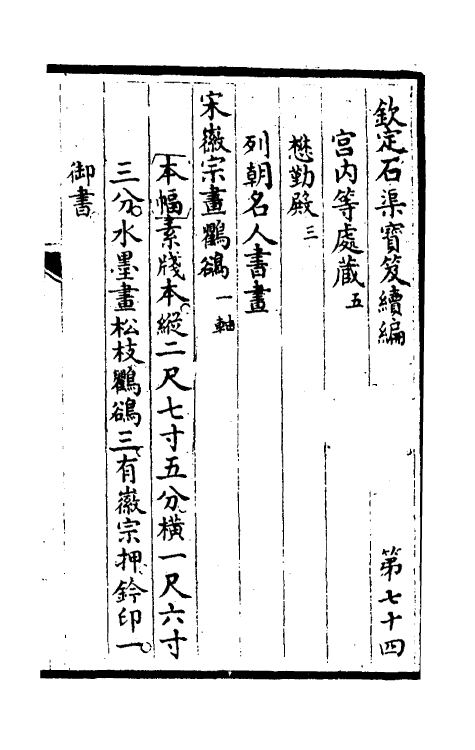 欽定石渠寶笈續編 第七十四
宮內等處藏五
懋勤殿三
列朝名人書畫
宋徽宗畫鸜鵒一軸
本幅素牋本縱二尺七寸五分橫一尺六寸
三分水墨畫松枝鸜鵒三有徽宗押鈐印一
御書